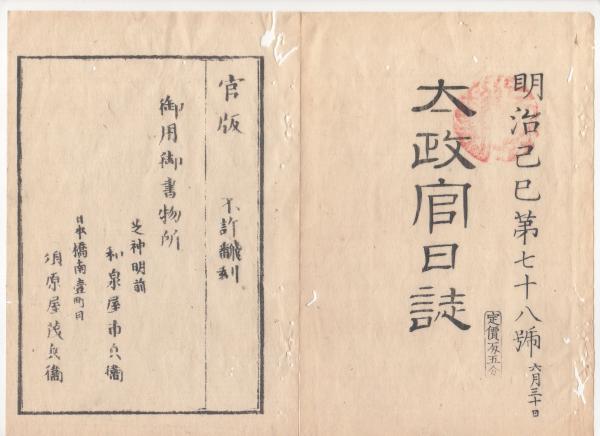 明治己巳第七十八號
六月三十日
太政官日誌
官版
不許翻刻
御用御書物所
芝神明前
和泉屋市兵衞
日本橋南壹町目
須原屋茂兵衞